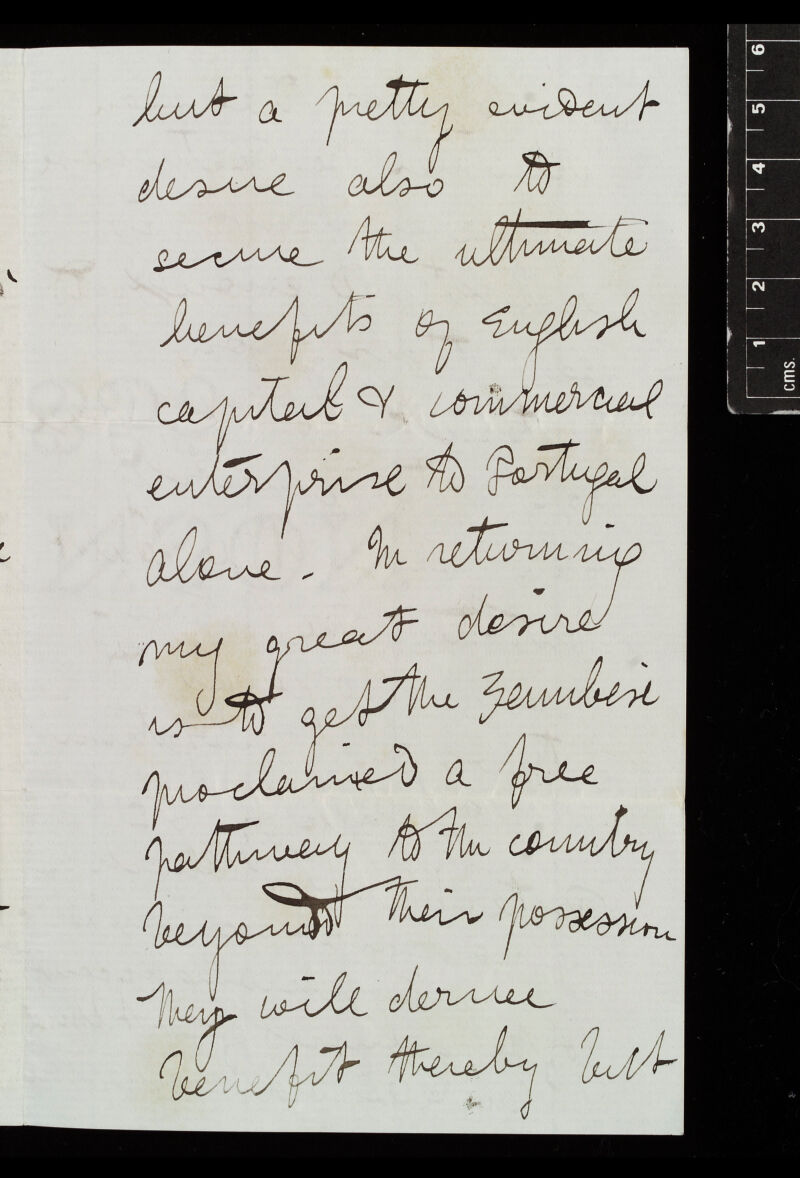 but a pretty evident
desire also to
secure the ultimate
benefits of English
capital & commercial
enterprise to Portugal
alone. In returning
my great desire
is to get the Zambesi
proclaimed a free
pathway to the country
beyond their possession
they will derive
benefit thereby but
6
5
4
3
2
1
cms.